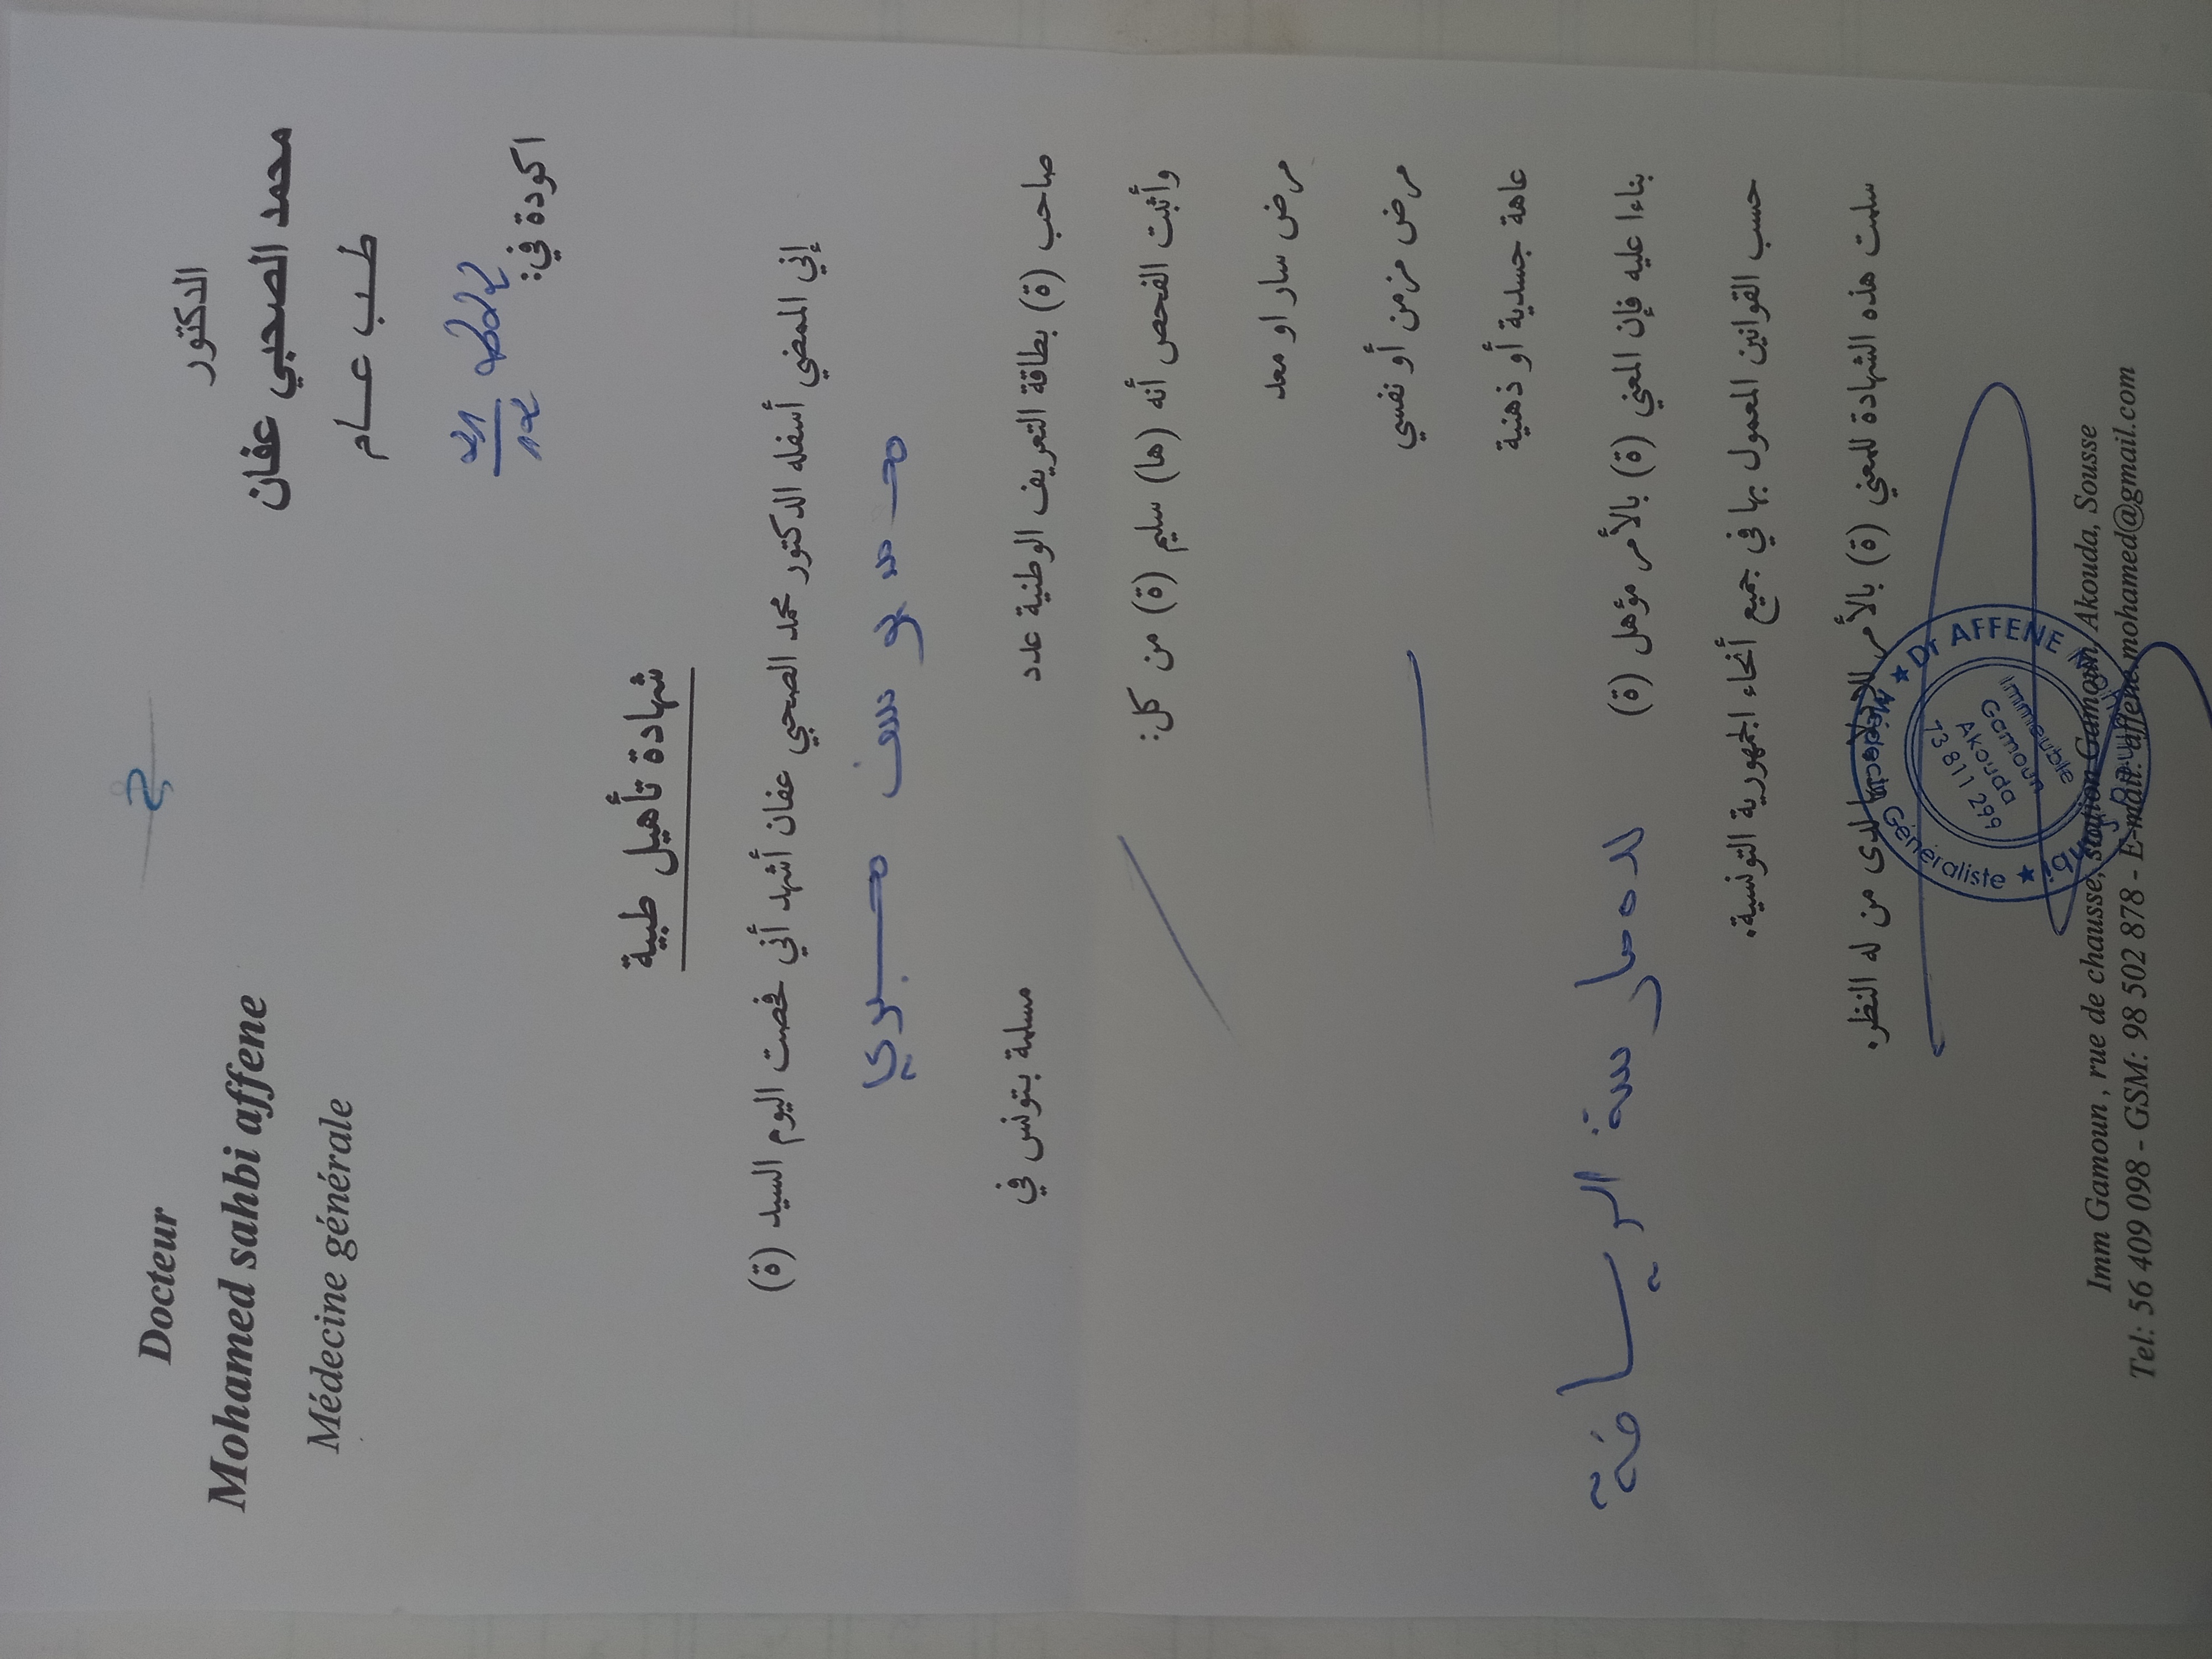 Docteur
Mohamed sahbi affene
Médecine générale
الدكتور
محمد الصحبي عفان
طب عام
اكودة في:
شهادة تأهيل طبية
إني الممضي أسفله الدكتور محمد الصحبي عفان أشهد أني فحصت اليوم السيد (ة)
يوسف
صاحب (ة) بطاقة التعريف الوطنية عدد مسلمة بتونس في
وأثبت الفحص أنه (ها) سليم (ة) من كل:
مرض سار او معد
مرض مزمن أو نفسي
عاهة جسدية أو ذهنية
بناءا عليه فإن المعني (ة) بالأمر مؤهل (ة) لممارسة الرياضة
حسب القوانين المعمول بها في جميع أنحاء الجمهورية التونسية.
سلمت هذه الشهادة للمعني (ة) بالأمر للإدلاء بها لدى من له النظر.
Dr AFFENE Mohamed Sahbi ★ Médecin Généraliste ★
Immeuble
Gamoun
Akouda
73 811 299
Imm Gamoun , rue de chausse, station Gamoun, Akouda, Sousse
Tel: 56 409 098 - GSM: 98 502 878 - E-mail: affene.mohamed@gmail.com